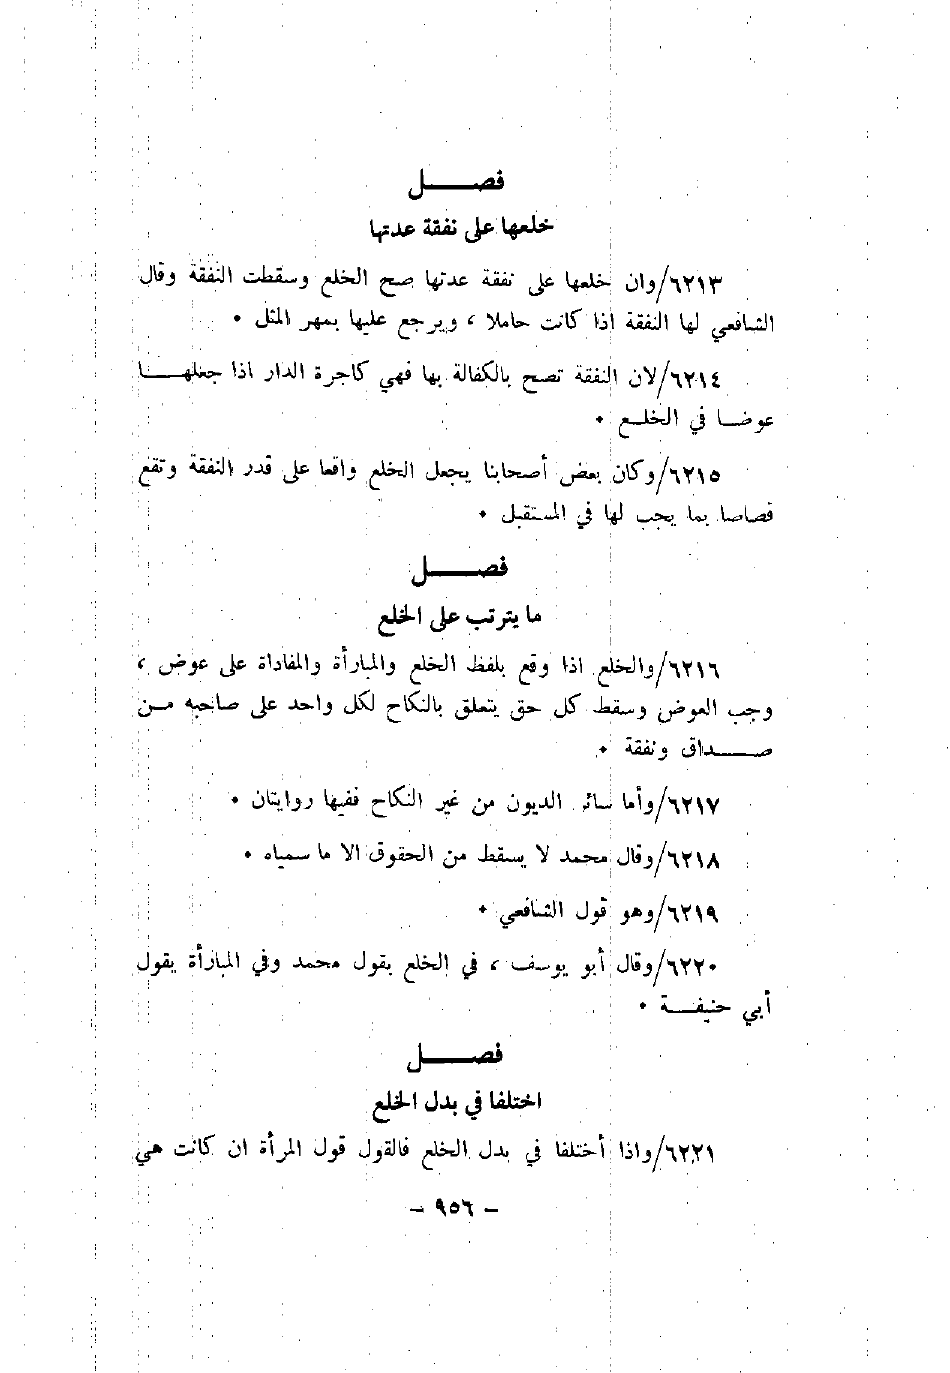 فصـــــل
خلعها على نفقة عدتها
٦٢١٣/وان خلعها على نفقة عدتها صح الخلع وسقطت النفقة وقال
الشافعي لها النفقة اذا كانت حاملا ، ويرجع عليها بمهر المثل ٠
٦٢١٤/لان النفقة تصح بالكفالة بها فهي كاجرة الدار اذا جعلهـــا
عوضــا في الخلــع ٠
٦٢١٥/وكان بعض أصحابنا يجعل الخلع واقعا على قدر النفقة وتقع
قصاصا بما يجب لها في المستقبل ٠
فصـــــل
ما يترتب على الخلع
٦٢١٦/والخلع اذا وقع بلفظ الخلع والمبارأة والمفاداة على عوض ،
وجب العوض وسقط كل حق يتعلق بالنكاح لكل واحد على صاحبه مــن
صــــداق ونفقة ٠
٦٢١٧/وأما سائر الديون من غير النكاح ففيها روايتان ٠
٦٢١٨/وقال محمد لا يسقط من الحقوق الا ما سمياه ٠
٦٢١٩/وهو قول الشافعي ٠
٦٢٢٠/وقال أبو يوسف ، في الخلع بقول محمد وفي المبارأة يقول
أبي حنيفــــة ٠
فصـــــل
اختلفا في بدل الخلع
٦٢٢١/واذا أختلفا في بدل الخلع فالقول قول المرأة ان كانت هي
– ٩٥٦ –